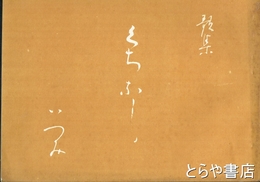 歌集
くちなし
いづみ
とらや書店